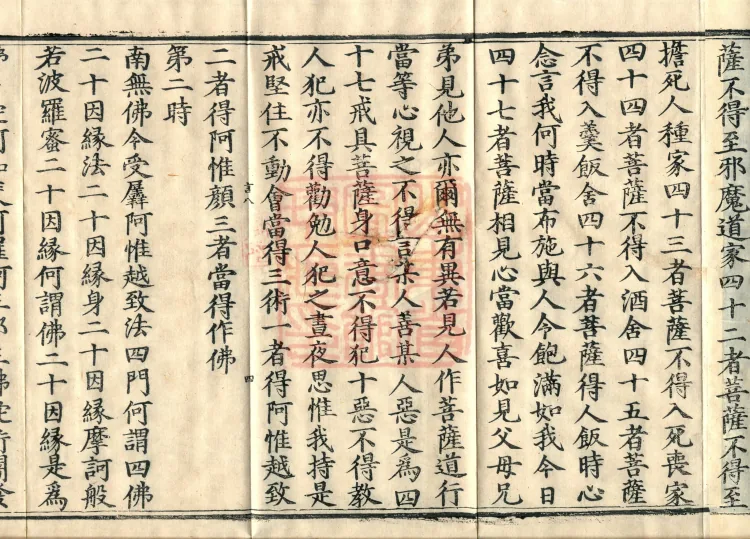 薩不得至邪魔道家四十二者菩薩不得至
擔死人種家四十三者菩薩不得入死喪家
四十四者菩薩不得入酒舍四十五者菩薩
不得入羹飯舍四十六者菩薩得人飯時心
念言我何時當布施與人令飽滿如我今日
四十七者菩薩相見心當歡喜如見父母兄
弟見他人亦爾無有異若見人作菩薩道行
當等心視之不得言某人善某人惡是為四
十七戒具菩薩身口意不得犯十惡不得教
人犯亦不得勸勉人犯之晝夜思惟我持是
戒堅住不動會當得三術一者得阿惟越致
言八
四
二者得阿惟顏三者當得作佛
第二時
南無佛今受羼阿惟越致法四門何謂四佛
二十因緣法二十因緣身二十因緣摩訶般
若波羅蜜二十因緣何謂佛二十因緣是為